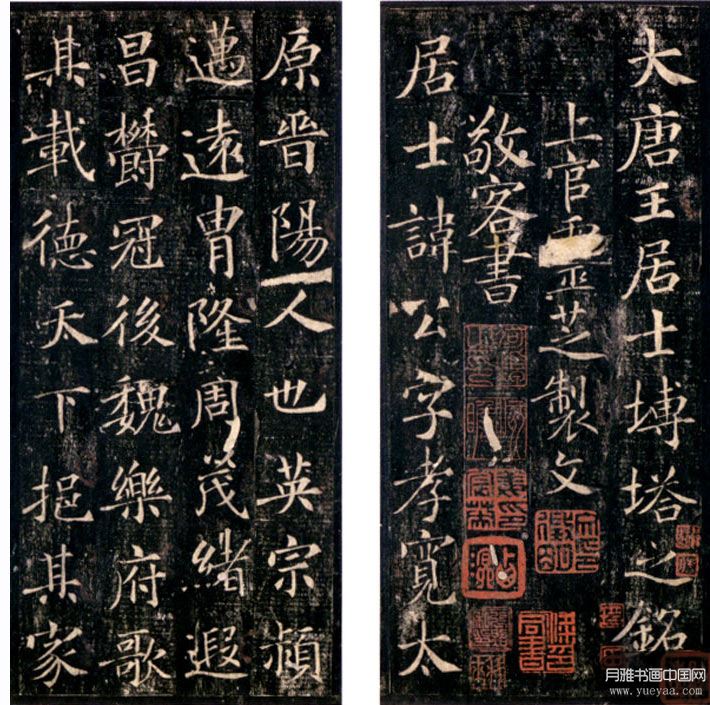 大唐王居士塼塔之銘
上官靈芝製文
敬客書
居士諱公字孝寬太
原晉陽人也英宗穎
邁遠胄隆周茂緒遐
昌欝冠後魏樂府歌
其載德天下挹其家
月雅书画中国网
www.yueyaa.com